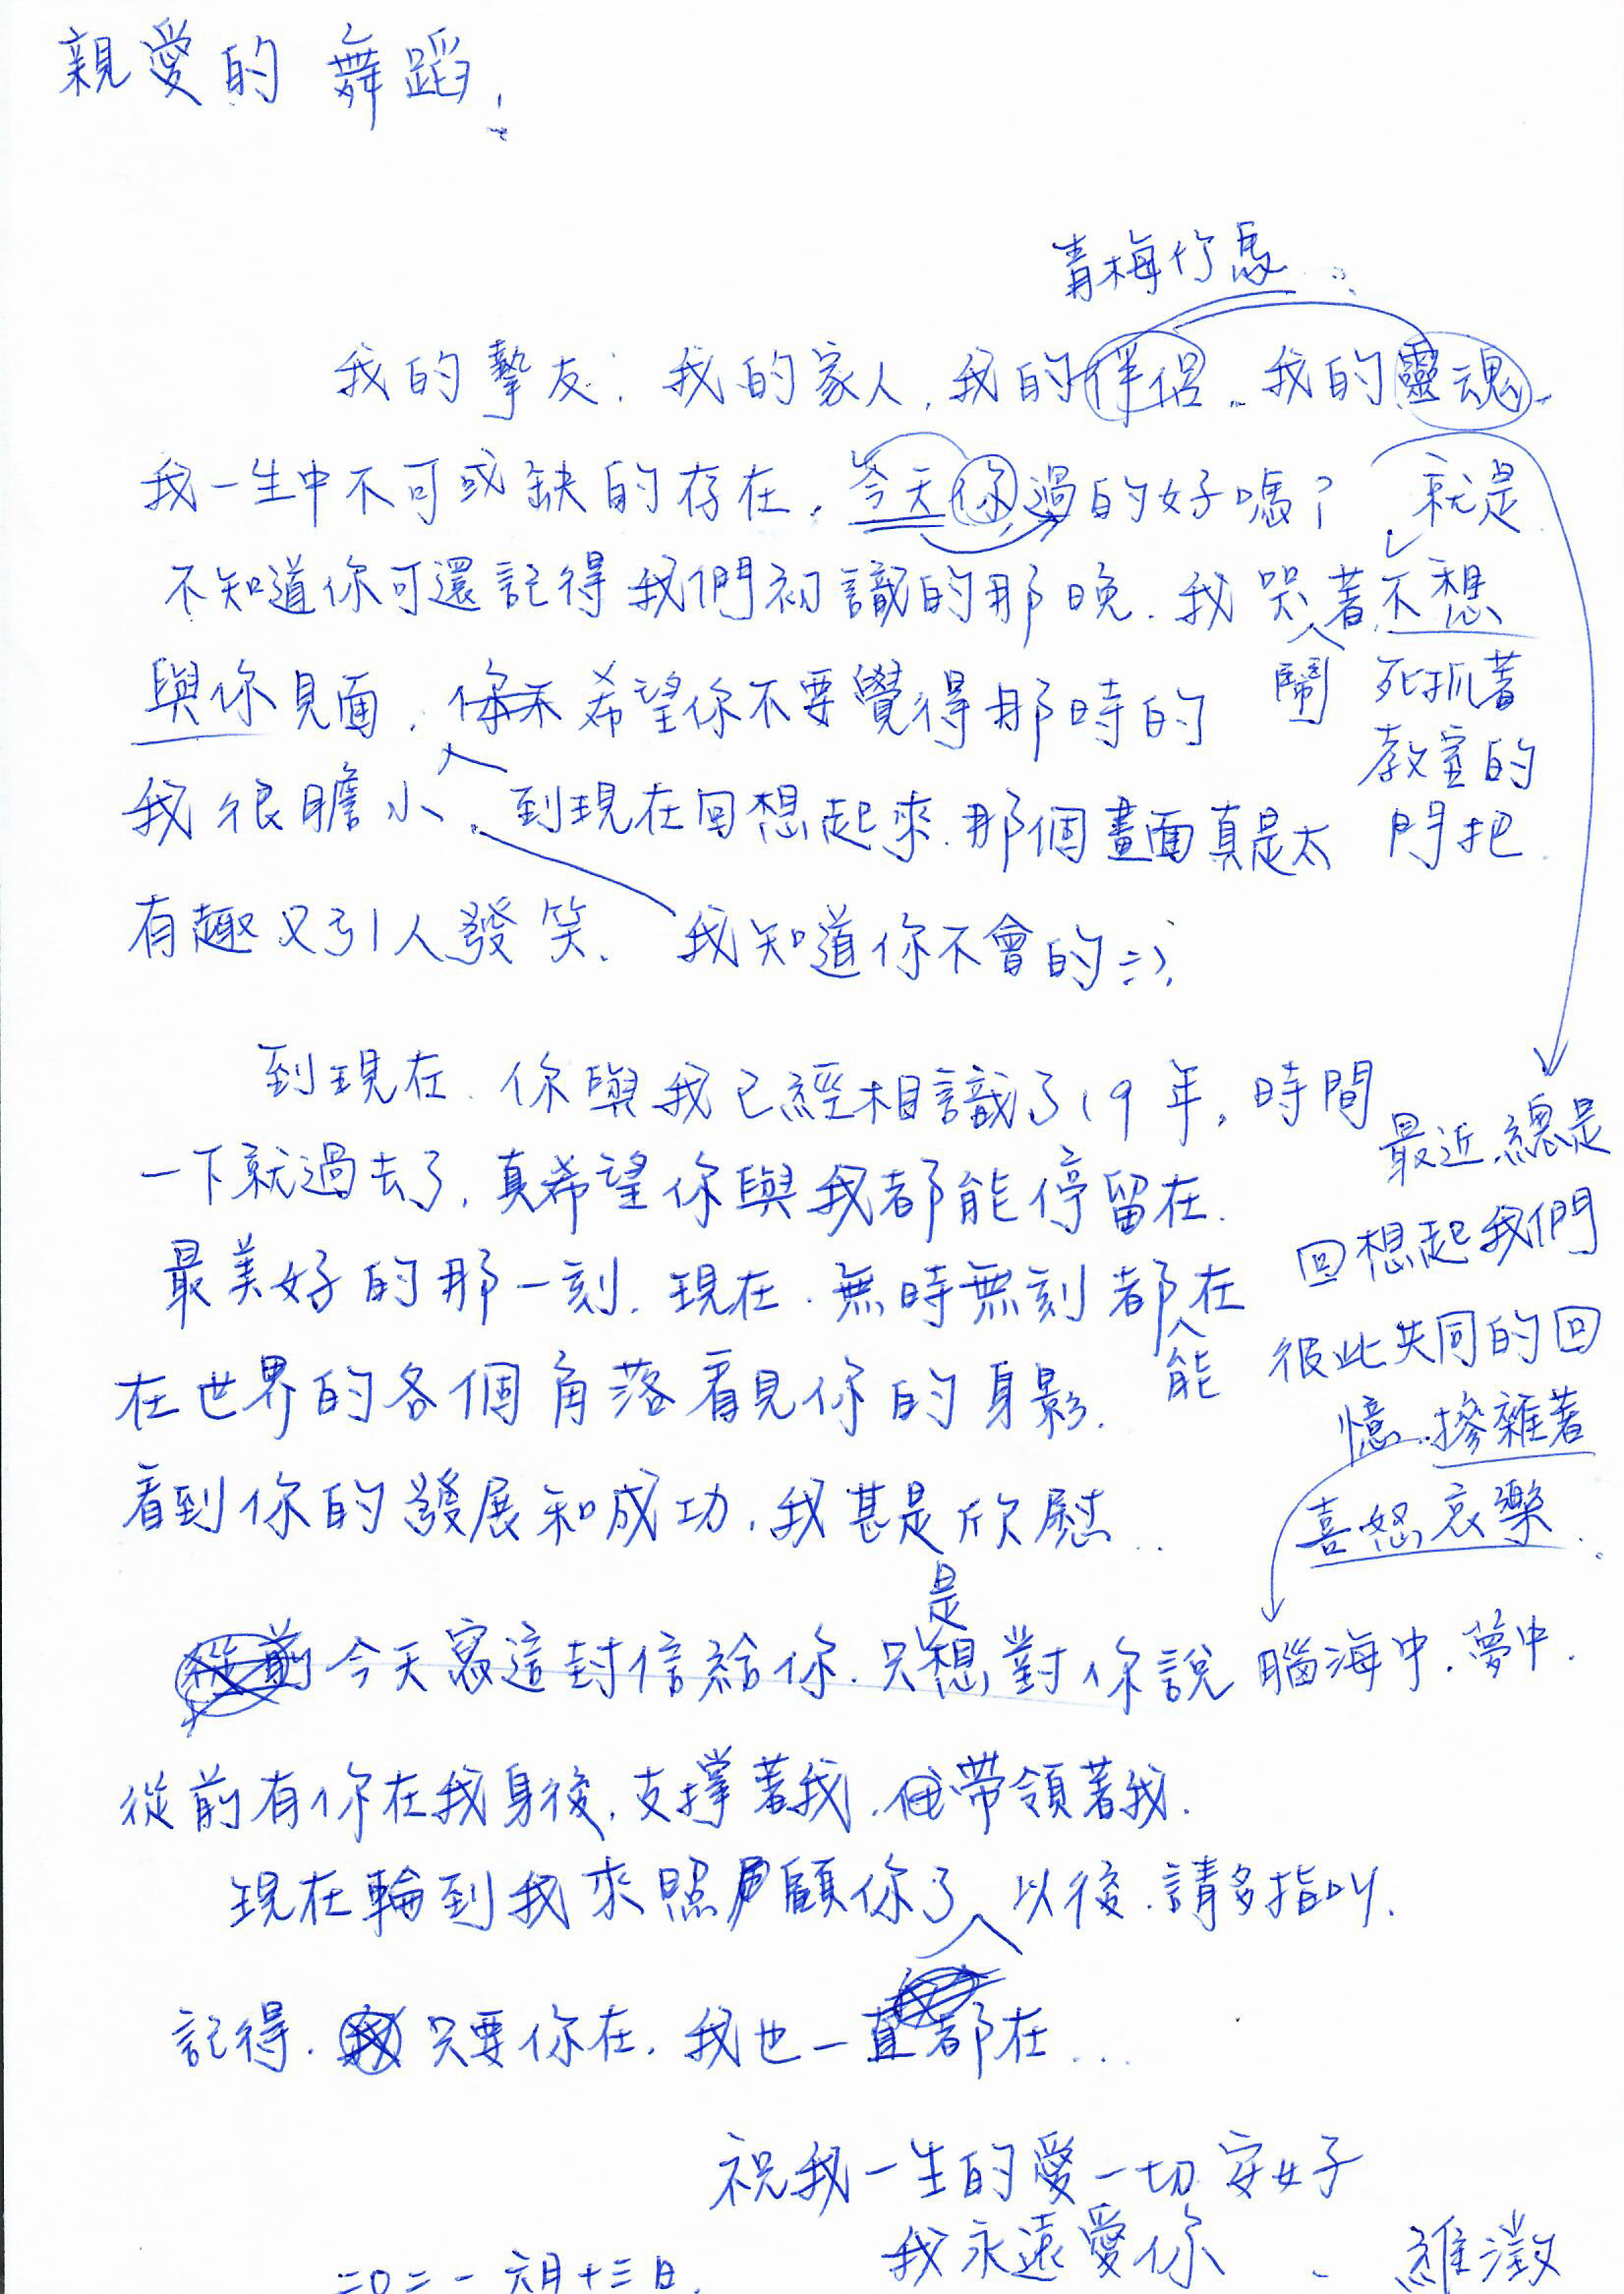 親愛的 舞蹈,
青梅竹馬
我的摯友,我的家人,我的伴侶,我的靈魂,
我一生中不可或缺的存在,今天你過的好嗎? 就是
不知道你可還記得我們初識的那晚,我哭著不想
鬧 死抓著
與你見面, 希望你不要覺得那時的
教室的
我很膽小,到現在回想起來,那個畫面真是太
門把
有趣又引人發笑, 我知道你不會的:),
到現在,你與我已經相識了19年,時間
一下就過去了,真希望你與我都能停留在
最近總是
最美好的那一刻,現在,無時無刻都在
回想起我們
能
彼此共同的回
在世界的各個角落看見你的身影,
憶,摻雜著
看到你的發展和成功,我甚是欣慰..
喜怒哀樂
是
今天寫這封信給你,只想對你說
腦海中,夢中,
從前有你在我身後,支撐著我,帶領著我,
現在輪到我來照顧你了 以後,請多指叫,
記得, 只要你在,我也一直都在...
祝我一生的愛一切安好
我永遠愛你
二〇二一 六月十三日, 維澂